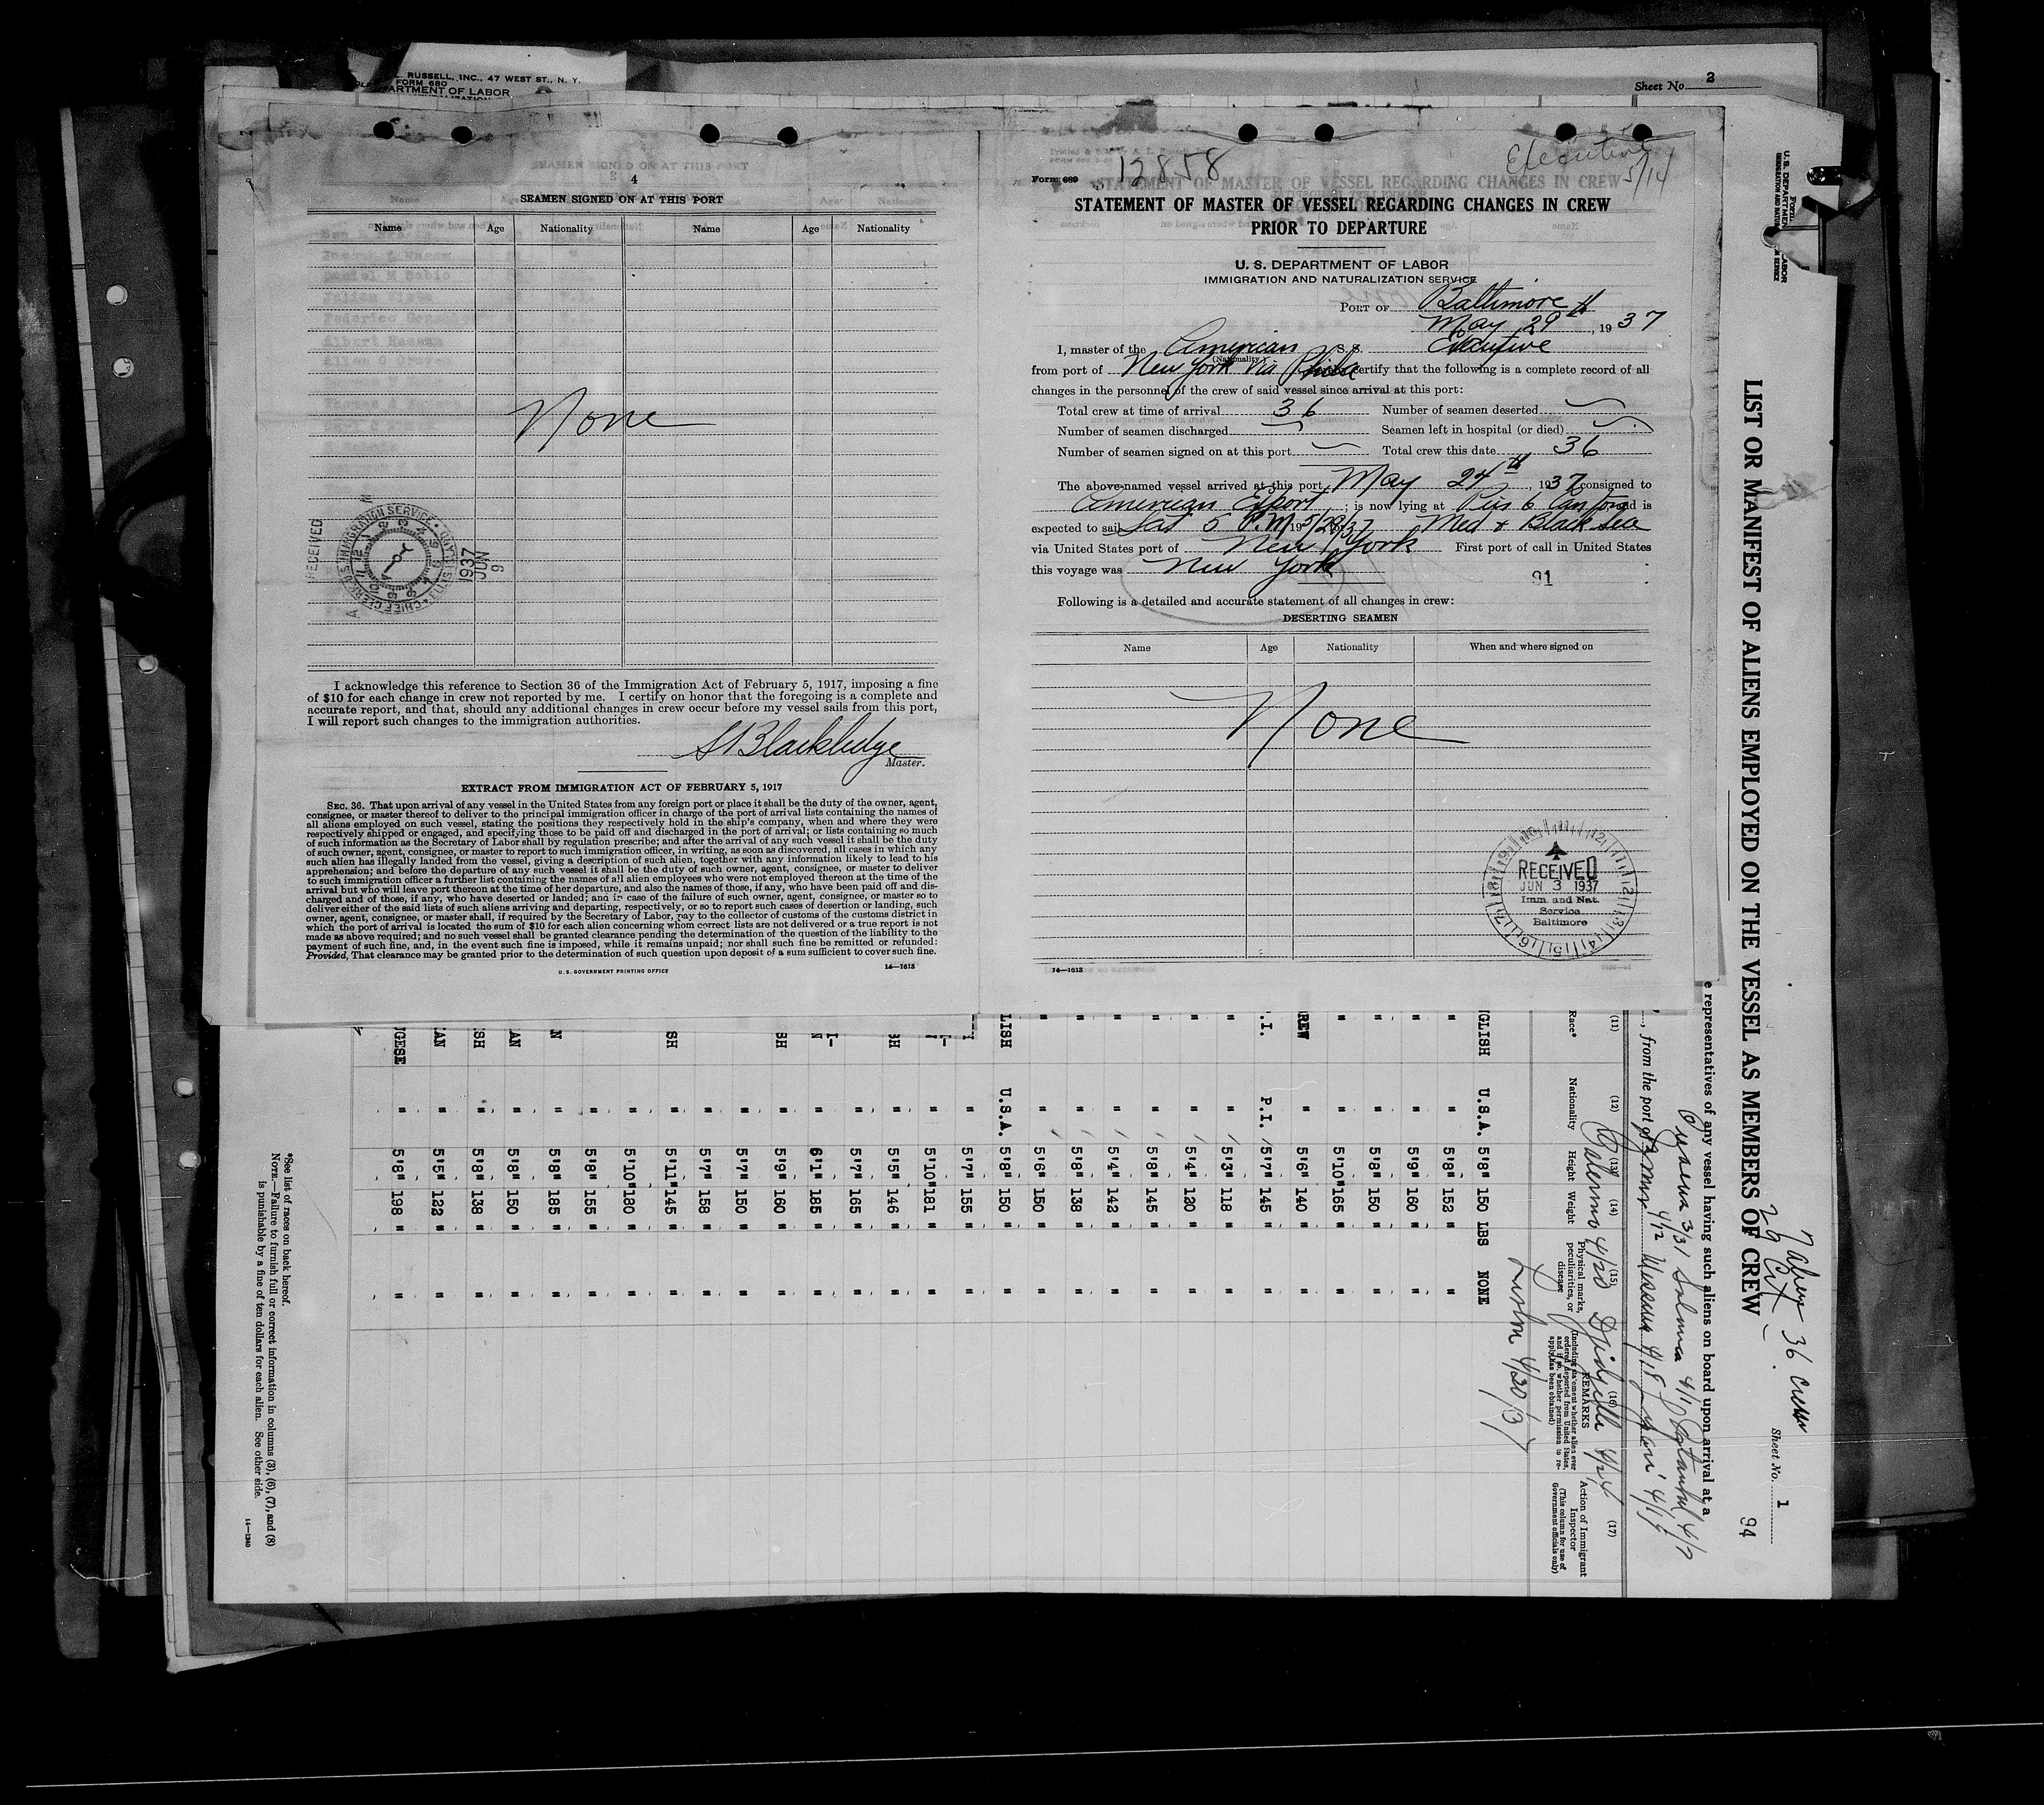 RUSSELL, INC., 47 WEST ST., N. Y.
FORM 680
ARTMENT OF LABOR
Sheet No. 2
4
SEAMEN SIGNED ON AT THIS PORT
Name Age Nationality Name Age Nationality
None
RECEIVED
U.S. IMMIGRATION SERVICE
CHIEF CLERK
1937
JUN
9
I acknowledge this reference to Section 36 of the Immigration Act of February 5, 1917, imposing a fine
of $10 for each change in crew not reported by me. I certify on honor that the foregoing is a complete and
accurate report, and that, should any additional changes in crew occur before my vessel sails from this port,
I will report such changes to the immigration authorities.
Master.
EXTRACT FROM IMMIGRATION ACT OF FEBRUARY 5, 1917
SEC. 36. That upon arrival of any vessel in the United States from any foreign port or place it shall be the duty of the owner, agent,
consignee, or master thereof to deliver to the principal immigration officer in charge of the port of arrival lists containing the names of
all aliens employed on such vessel, stating the positions they respectively hold in the ship's company, when and where they were
respectively shipped or engaged, and specifying those to be paid off and discharged in the port of arrival; or lists containing so much
of such information as the Secretary of Labor shall by regulation prescribe; and after the arrival of any such vessel it shall be the duty
of such owner, agent, consignee, or master to report to such immigration officer, in writing, as soon as discovered, all cases in which any
such alien has illegally landed from the vessel, giving a description of such alien, together with any information likely to lead to his
apprehension; and before the departure of any such vessel it shall be the duty of such owner, agent, consignee, or master to deliver
to such immigration officer a further list containing the names of all alien employees who were not employed thereon at the time of the
arrival but who will leave port thereon at the time of her departure, and also the names of those, if any, who have been paid off and dis-
charged and of those, if any, who have deserted or landed; and in case of the failure of such owner, agent, consignee, or master so to
deliver either of the said lists of such aliens arriving and departing, respectively, or so to report such cases of desertion or landing, such
owner, agent, consignee, or master shall, if required by the Secretary of Labor, pay to the collector of customs of the customs district in
which the port of arrival is located the sum of $10 for each alien concerning whom correct lists are not delivered or a true report is not
made as above required; and no such vessel shall be granted clearance pending the determination of the question of the liability to the
payment of such fine, and, in the event such fine is imposed, while it remains unpaid; nor shall such fine be remitted or refunded:
Provided, That clearance may be granted prior to the determination of such question upon deposit of a sum sufficient to cover such fine.
U. S. GOVERNMENT PRINTING OFFICE 14—1613
12858
Executive
5/14
Form 689
STATEMENT OF MASTER OF VESSEL REGARDING CHANGES IN CREW
PRIOR TO DEPARTURE
U. S. DEPARTMENT OF LABOR
IMMIGRATION AND NATURALIZATION SERVICE
PORT OF Baltimore
May 29th, 1937
I, master of the American S. S. Executive
(Nationality)
from port of New York via Phila certify that the following is a complete record of all
changes in the personnel of the crew of said vessel since arrival at this port:
Total crew at time of arrival 36 Number of seamen deserted
Number of seamen discharged Seamen left in hospital (or died)
Number of seamen signed on at this port Total crew this date 36
The above-named vessel arrived at this port May 24th, 1937 consigned to
American Export; is now lying at Pier 6 Canton and is
expected to sail Sat 5 P.M. 19 5/29/37 Med & Black Sea
via United States port of New York First port of call in United States
this voyage was New York
91
Following is a detailed and accurate statement of all changes in crew:
DESERTING SEAMEN
Name Age Nationality When and where signed on
None
RECEIVED
JUN 3 1937
Imm. and Nat.
Service
Baltimore
14—1613
LIST OR MANIFEST OF ALIENS EMPLOYED ON THE VESSEL AS MEMBERS OF CREW
Sheet No. 1
94
36 Crew
e representatives of any vessel having such aliens on board upon arrival at a
, from the port of
Palermo 4/20
Lisbon 4/30/37
(11) (12) (13) (14) (15) (16) (17)
Race* Nationality Height Weight Physical marks, peculiarities, or disease REMARKS Action of Immigrant Inspector
(This column for use of Government officials only)
GLISH U.S.A. 5'8" 150 LBS NONE
" " 5'8" 152 " "
" " 5'9" 160 " "
" " 5'8" 150 " "
" " 5'10" 165 " "
REW " 5'6" 140 " "
.I. P.I. 5'7" 145 " "
" " 5'3" 118 " "
" " 5'4" 120 " "
" " 5'8" 145 " "
" " 5'4" 142 " "
" " 5'8" 138 " "
" " 5'6" 150 " "
LISH U.S.A. 5'8" 150 " "
" 5'7" 155 " "
" 5'10" 181 " "
SH " 5'5" 146 " "
" 5'7" 165 " "
N " 6'1" 185 " "
SH " 5'9" 160 " "
" 5'7" 150 " "
" 5'7" 158 " "
SH " 5'11" 145 " "
" 5'10" 180 " "
" 5'8" 155 " "
N " 5'8" 185 " "
AN " 5'8" 150 " "
SH " 5'8" 138 " "
AN " 5'5" 122 " "
UGESE " 5'8" 198 " "
*See list of races on back hereof.
NOTE.—Failure to furnish full or correct information in columns (3), (6), (7), and (8)
is punishable by a fine of ten dollars for each alien. See other side.
14—1240